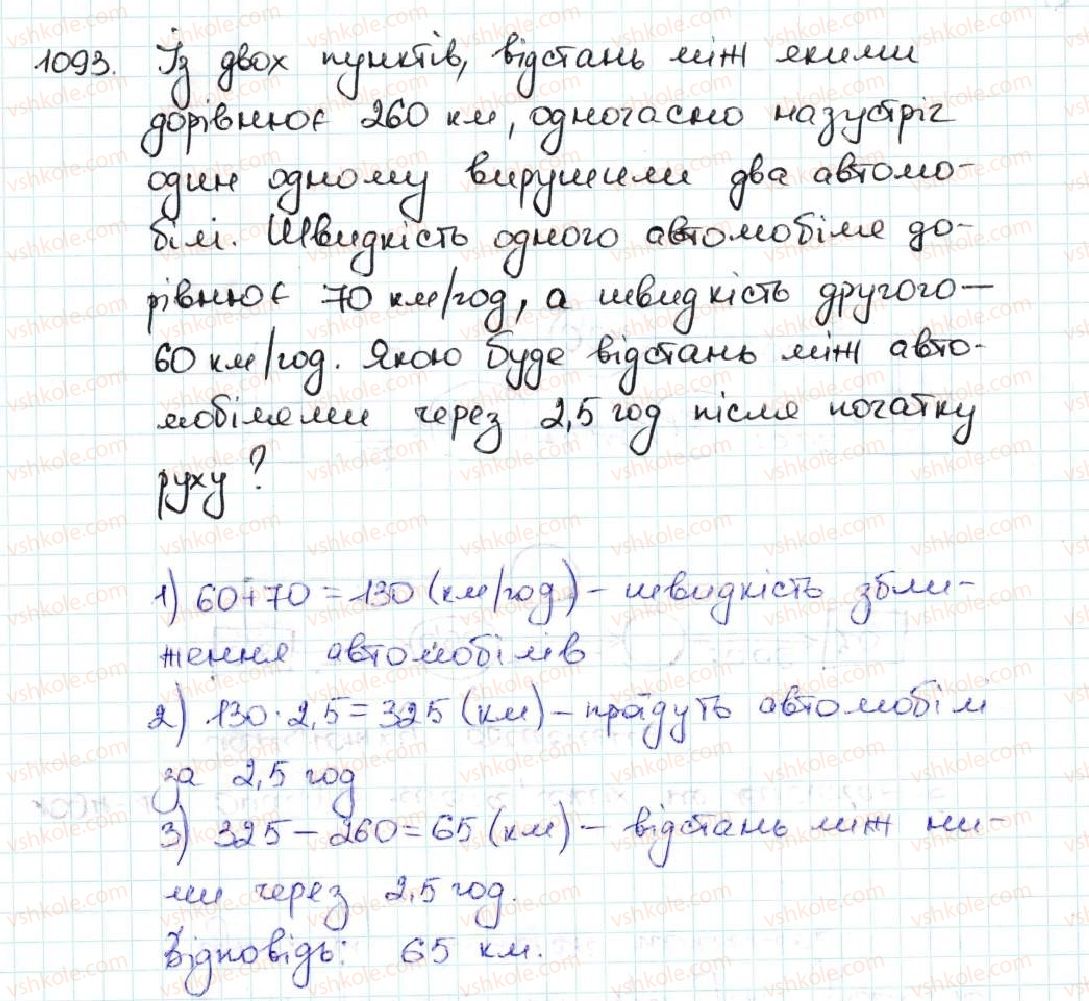 1093. Із двох пунктів, відстань між якими
дорівнює 260 км, одночасно назустріч
один одному вирушили два автомо-
білі. Швидкість одного автомобіля до-
рівнює 70 км/год, а швидкість другого —
60 км/год. Якою буде відстань між авто-
мобілями через 2,5 год після початку
руху?
1) 60+70=130 (км/год) – швидкість збли-
ження автомобілів
2) 130·2,5=325 (км) – пройдуть автомобілі
за 2,5 год
3) 325–260=65 (км) – відстань між ни-
ми через 2,5 год.
Відповідь: 65 км.